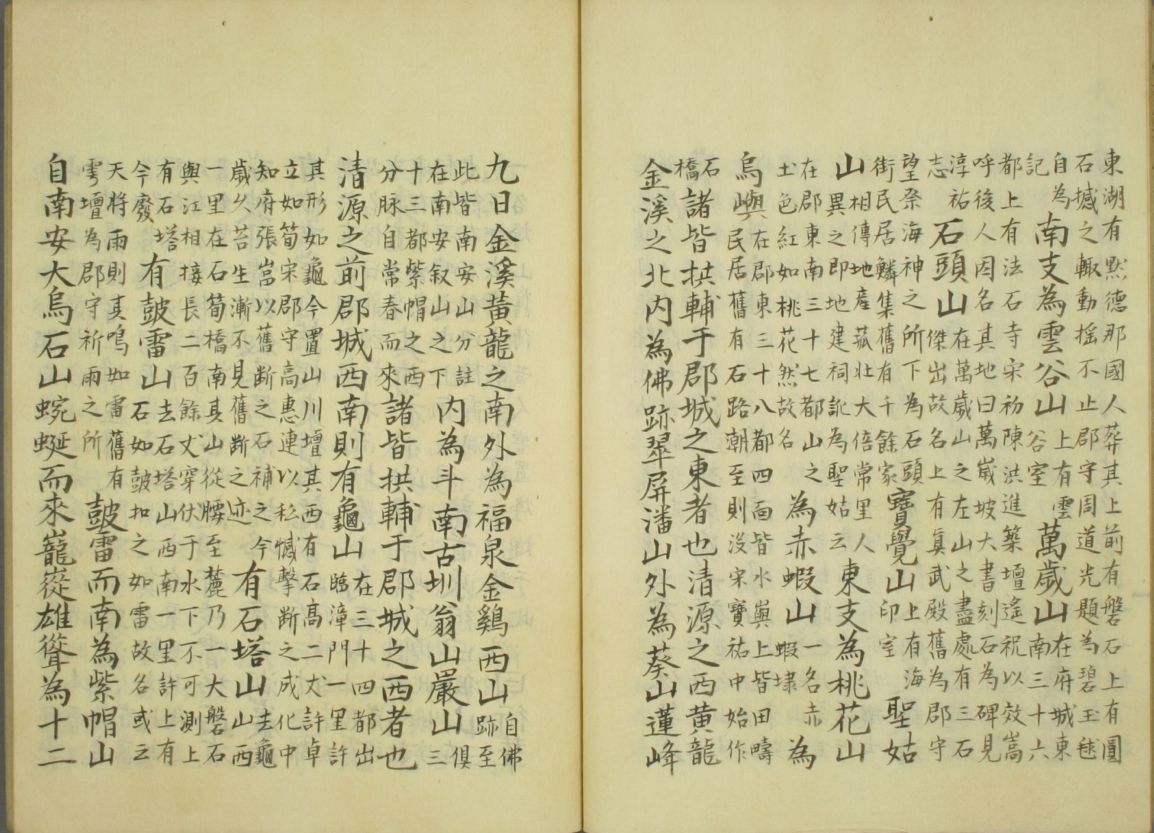 東湖有黙德那國人葬其上前有磐石上有圓
石撼之輙動揺不止郡守周道光題為碧玉毬
自為
記
南支為雲谷山
上有雲
谷室
萬歲山
在府城東
南三十六
都上有法石寺宋初陳洪進築壇遙祝以效嵩
呼後人因名其地曰萬歲坡大書刻石為碑見
淳祐
志
石頭山
在萬歲山之左山之盡處有三石
傑出故名上有真武殿舊為郡守
望祭海神之所下為石頭
街民居鱗集舊有千餘家
寶覺山
上有海
印室
聖姑
山
相傳地產菰壯大倍常里人
異之即地建祠訛為聖姑云
東支為桃花山
在郡東南三十七都山之
土色紅如桃花然故名
為赤蝦山
一名赤
蝦埭
為
烏嶼
在郡東三十八都四面皆水嶼上皆田疇
民居舊有石路潮至則沒宋寶祐中始作
石
橋
諸皆拱輔于郡城之東者也清源之西黄龍
金溪之北内為佛跡翠屏潘山外為葵山蓮峰
九日金溪黄龍之南外為福泉金鷄西山
自佛
跡至
此皆南安山分註
在南安叙山之下
内為斗南古圳翁山巖山
俱
三
十三都紫帽之西
分脉自常春而來
諸皆拱輔于郡城之西者也
清源之前郡城西南則有龜山
在三十四都出
臨漳門一里許
其形如龜今置山川壇其西有石高二丈許卓
立如筍宋郡守高惠連以私憾擊斷之成化中
知府張嵓以舊斷之石補之今
歲久苔生漸不見舊斷之迹
有石塔山
去龜
山西
一里在石筍橋南其山從腰至麓乃一大磐石
與江相接長二百餘丈穿伏于水下不可測上
有石塔
今廢
有鼓雷山
去石塔山西南一里許上有
石如鼓扣之如雷故名或云
天將雨則戛鳴如雷舊有
雩壇為郡守祈雨之所
鼓雷而南為紫帽山
自南安大烏石山蜿蜒而來巃嵸雄聳為十二